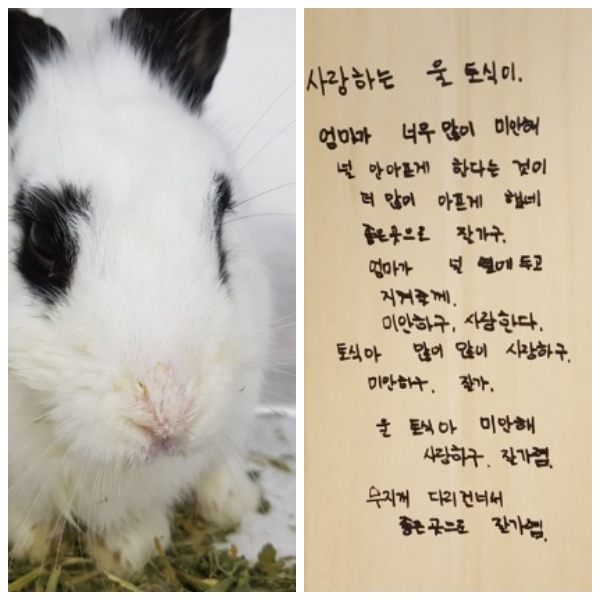 사랑하는 울 토식이.
엄마가 너무 많이 미안해
널 안아프게 한다는 것이
더 많이 아프게 했네
좋은곳으로 잘가구.
엄마가 널 옆에 두고
지켜줄께.
미안하구, 사랑한다.
토식아 많이 많이 사랑하구.
미안하구, 잘가.
울 토식아 미안해
사랑하구. 잘가렴.
무지개 다리건너서
좋은곳으로 잘가렴.